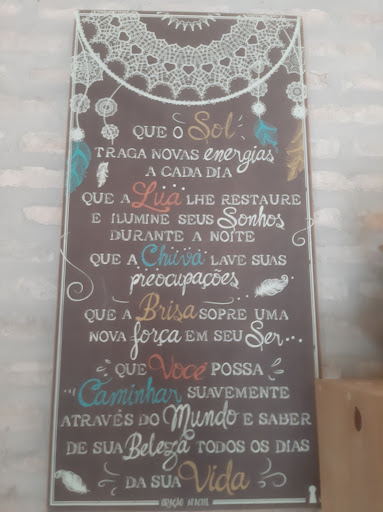 QUE O Sol
TRAGA NOVAS energias
A CADA DIA
QUE A Lua LHE RESTAURE
E ILUMINE SEUS Sonhos
DURANTE A NOITE
QUE A Chuva LAVE SUAS
preocupações
QUE A Brisa SOPRE UMA
NOVA força EM SEU Ser...
QUE Você POSSA
Caminhar SUAVEMENTE
ATRAVÉS DO Mundo E SABER
DE SUA Beleza TODOS OS DIAS
DA SUA Vida
ORAÇÃO APACHE